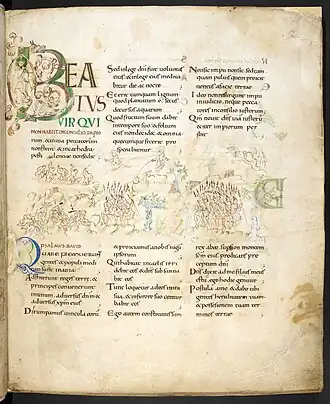 BEA
TUS
VIR QUI
NON HABIIT IN CONSILIO IMPIO
rum, et in via peccatorum
non stetit, et in cathedra
pestilentiae non sedit
Sed in lege dñi fuit voluntas
eius, et in lege eius medita
bitur die ac nocte
Et erit tamquam lignum
quod plantatum est secus
decursus aquarum
Quod fructum suum dabit
in tempore suo, et folium
eius non decidet, et omnia
quaecumque fecerit pro
sperabuntur
Non sic impii non sic, sed tam
quam pulvis quem proicit
ventus a facie terrae
Ideo non resurgunt impii
in iudicio, neque pecca
tores in consilio iustorum
Qm novit dñs via iustorū
et iter impiorum per
ibit
PSALMUS DAVID
QUARE FREMUERUNT
gentes, et populi medi
tati sunt inania
Adstiterunt reges terrae, et
principes convenerunt
in unum, adversus dñm et
adversus xpm eius
Dirumpamus vincula eorū
et proiciamus a nobis iugū
ipsorum
Qui habitat in caelis irri
debit eos, et dñs subsanna
bit eos
Tunc loquetur ad eos in ira
sua, et in furore suo contur
babit eos
Ego autem constitutus sum
rex ab eo, super sion montem
scm eius, predicans pre
ceptum dñi
Dñs dixit ad me filius meus
es tu, ego hodie genui te
Postula a me, et dabo tibi
gentes hereditatem tuam
et possessionem tuam ter
minos terrae